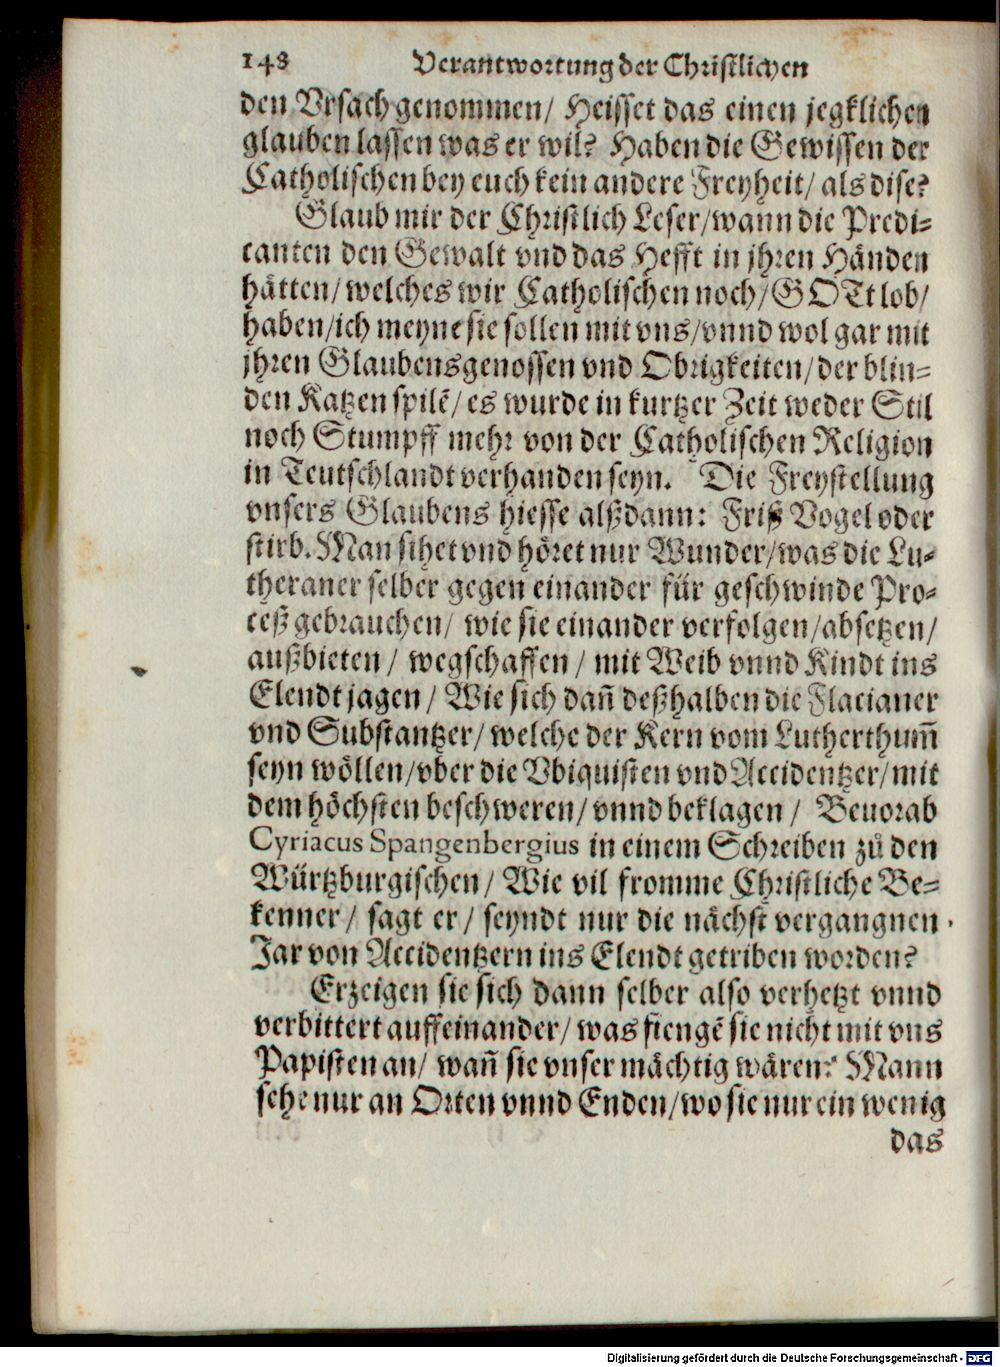 148 Verantwortung der Christlichen
den Vrsach genommen/ Heisset das einen jegklichen
glauben lassen was er wil? Haben die Gewissen der
Catholischen bey euch kein andere Freyheit/ als dise?
Glaub mir der Christlich Leser/wann die Predi-
canten den Gewalt vnd das Hefft in jhren Händen
hätten/welches wir Catholischen noch/GOTt lob/
haben/ich meyne sie sollen mit vns/vnnd wol gar mit
jhren Glaubensgenossen vnd Obrigkeiten/der blin-
den Katzen spilē/es wurde in kurtzer Zeit weder Stil
noch Stumpff mehr von der Catholischen Religion
in Teutschlandt verhanden seyn. Die Freystellung
vnsers Glaubens hiesse alßdann: Friß Vogel oder
stirb. Man sihet vnd höret nur Wunder/was die Lu-
theraner selber gegen einander für geschwinde Pro-
ceß gebrauchen/ wie sie einander verfolgen/absetzen/
außbieten/ wegschaffen/ mit Weib vnnd Kindt ins
Elendt jagen/ Wie sich dañ deßhalben die Flacianer
vnd Substantzer/welche der Kern vom Lutherthum̃
seyn wöllen/vber die Vbiquisten vnd Accidentzer/mit
dem höchsten beschweren/vnnd beklagen/ Beuorab
Cyriacus Spangenbergius in einem Schreiben zů den
Würtzburgischen/ Wie vil fromme Christliche Be-
kenner/ sagt er/ seyndt nur die nächst vergangnen
Jar von Accidentzern ins Elendt getriben worden?
Erzeigen sie sich dann selber also verhetzt vnnd
verbittert auffeinander/was fiengē sie nicht mit vns
Papisten an/ wañ sie vnser mächtig wären? Mann
sehe nur an Orten vnnd Enden/wo sie nur ein wenig
das
Digitalisierung gefördert durch die Deutsche Forschungsgemeinschaft - DFG